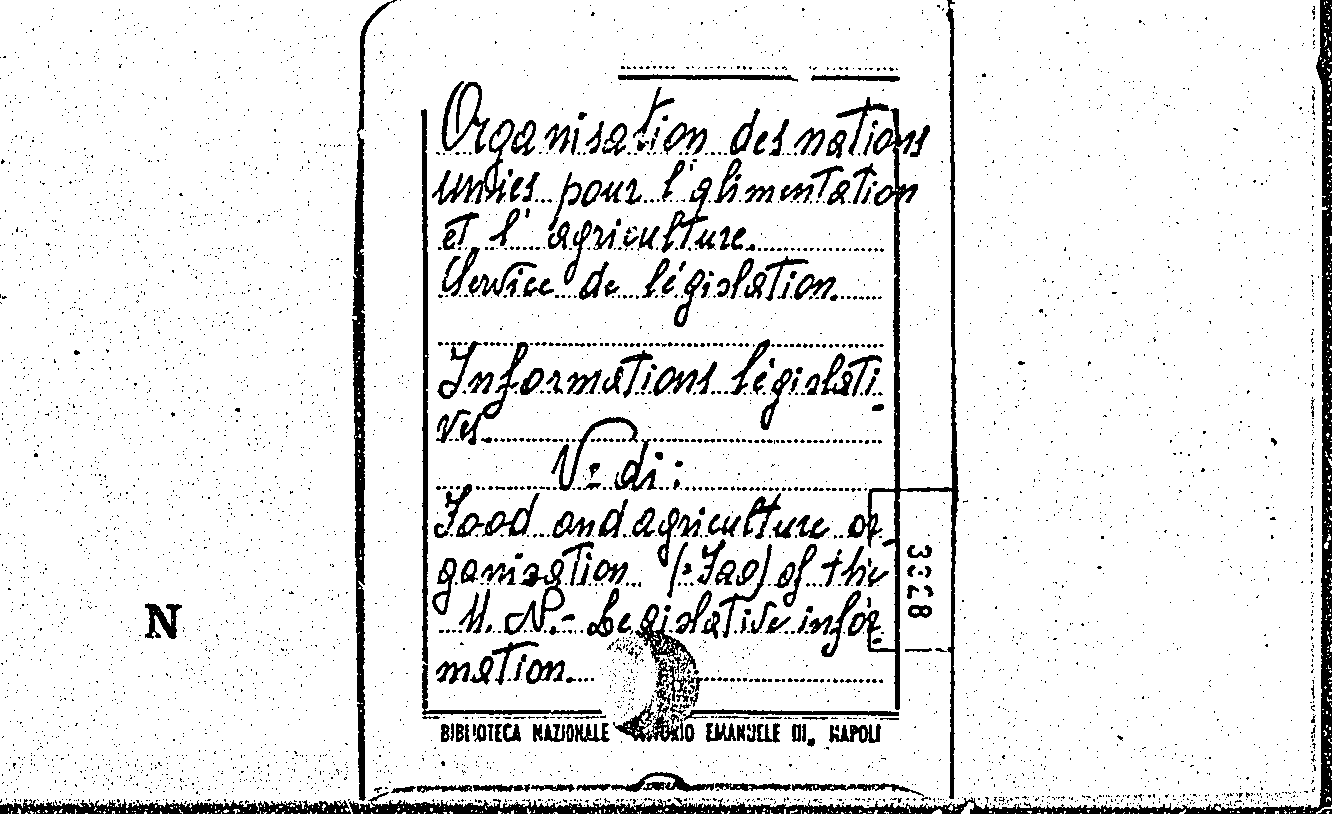 Organisation des nations
unies pour l'alimentation
et l'agriculture.
Service de législation.
Informations législati-
ves.
V: di:
Food and agriculture or-
ganization (:Fao) of the
U. N.- Legislative infor-
mation.
BIBLIOTECA NAZIONALE VITTORIO EMANUELE III, NAPOLI
3328
N